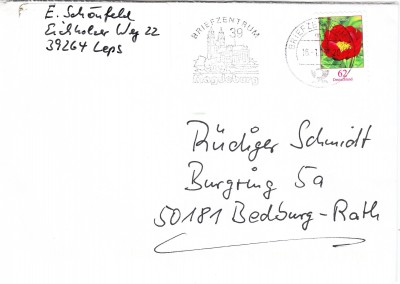 E. Schönfeld
Eichholzer Weg 22
39264 Leps
BRIEFZENTRUM
39
Magdeburg
BRIEFZE
62
Deutschland
Rüdiger Schmidt
Burgring 5a
50181 Bedburg-Rath